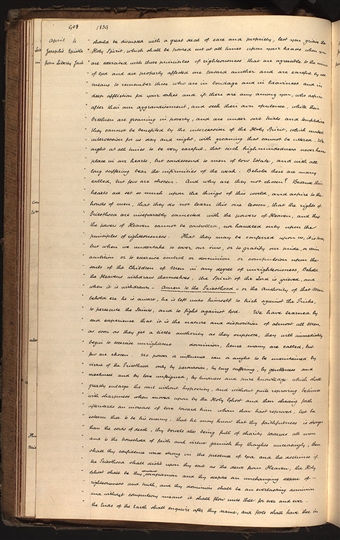 1838
April 4
Joseph's Epistle from Liberty Jail
should be discussed with a great deal of care and propriety, lest you grieve the
Holy Spirit, which shall be poured out at all times upon your heads when you
are exercised with those principles of righteousness that are agreeable to the mind
of God and are properly affected one toward another, and are careful by all
means to remember those who are in bondage and in heaviness and in
deep affliction for your sakes and if there are any among you, who aspire
after their own aggrandizement, and seek their own opulence, while their
brethren are groaning in poverty, and are under sore trials and temptations
they cannot be benefited by the intercession of the Holy Spirit, which maketh
intercession for us day and night, with groaning that cannot be uttered. We
ought at all times to be very careful, that such highmindedness never have
place in our hearts, but condescend to men of low estate, and with all
long suffering bear the infirmities of the weak. Behold there are many
called, but few are chosen. And why are they not chosen? Because their
hearts are set so much upon the things of this world, and aspire to the
honors of men, that they do not learn this one lesson, that the rights of
Priesthood are inseparably connected with the powers of Heaven, and that
the powers of Heaven cannot be controlled, nor handled only upon the
principles of righteousness. That they may be conferred upon us, it is true
but when we undertake to cover our sins, or to gratify our pride, or vain
ambition or to exercise control or dominion or compulsion upon the
souls of the Children of Men in any degree of unrighteousness. Behold
the Heavens withdraw themselves, the Spirit of the Lord is grieved, and
when it is withdrawn - Amen to the Priesthood - or the Authority of that Man
behold ere he is aware, he is left unto himself to kick against the Pricks,
to persecute the Saints, and to fight against God. We have learned by
sad experience that it is the nature and disposition of almost all Men,
as soon as they get a little authority as they suppose, they will immediately
begin to exercise unrighteous dominion, hence many are called, but
few are chosen. No power or influence can or ought to be maintained by
virtue of the Priesthood only by persuasion, by long suffering, by gentleness and
meekness and by love unfeigned, by kindness and pure knowledge which shall
greatly enlarge the soul without hypocrisy, and without guile, reproving betimes
with sharpness when moved upon by the Holy Ghost and then shewing forth
afterwards an increase of love toward him whom thou hast reproved, lest he
esteem thee to be his enemy, that he may know that thy faithfulness is stronger
than the cords of death; thy bowels also being full of charity towards all men
and to the household of faith and virtue garnish thy thoughts unceasingly, then
shall thy confidence wax strong in the presence of God, and the doctrine of
the Priesthood shall distil upon thy soul as the dews from Heaven, the Holy
Ghost shall be thy companion and thy sceptre an unchanging sceptre of
righteousness and truth, and thy dominion shall be an everlasting dominion
and without compulsory means it shall flow unto thee for ever and ever
the Ends of the Earth shall enquire after thy name, and fools shall have thee in